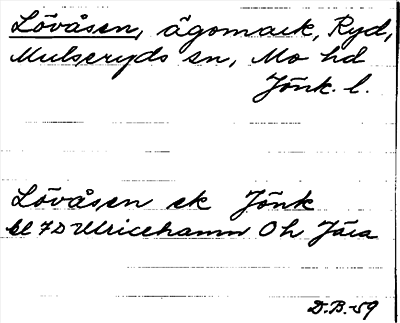 Lövåsen, ägomark, Ryd,
Mulseryds sn, Mo hd
Jönk. l.
Lövåsen ek Jönk
bl 7D Ulricehamn Oh Jära
D.B.-59